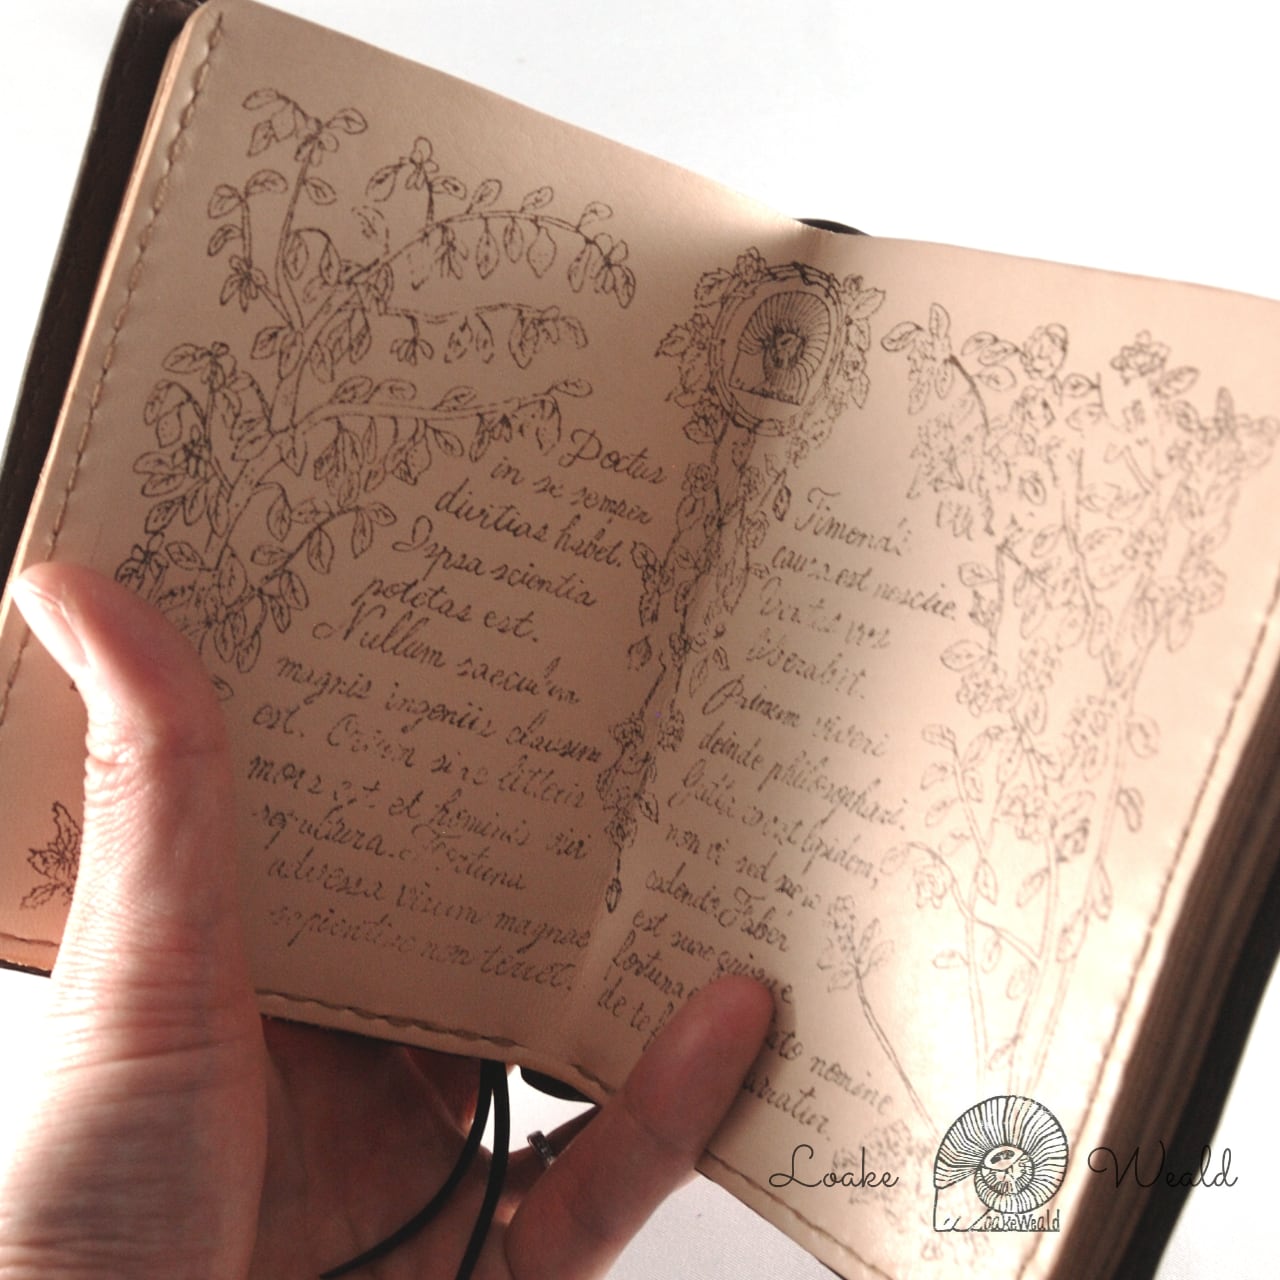 Doctus
in se semper
divitias habet.
Ipsa scientia
potetas est.
Nullum saeculum
magnis ingeniis clausum
est. Otium sine litteris
mors est et hominis vivi
sepultura. Fortuna
adversa virum magnae
sapientiae non terret.
Timendi
causa est nescire.
Veritas vos
liberabit.
Primum viveri
deinde philosophari.
Gutta cavat lapidem,
non vi sed saepe
cadendo. Faber
est suae quisque
fortunae
de te
nomine
narratur.
Loake Weald
LoakeWeald